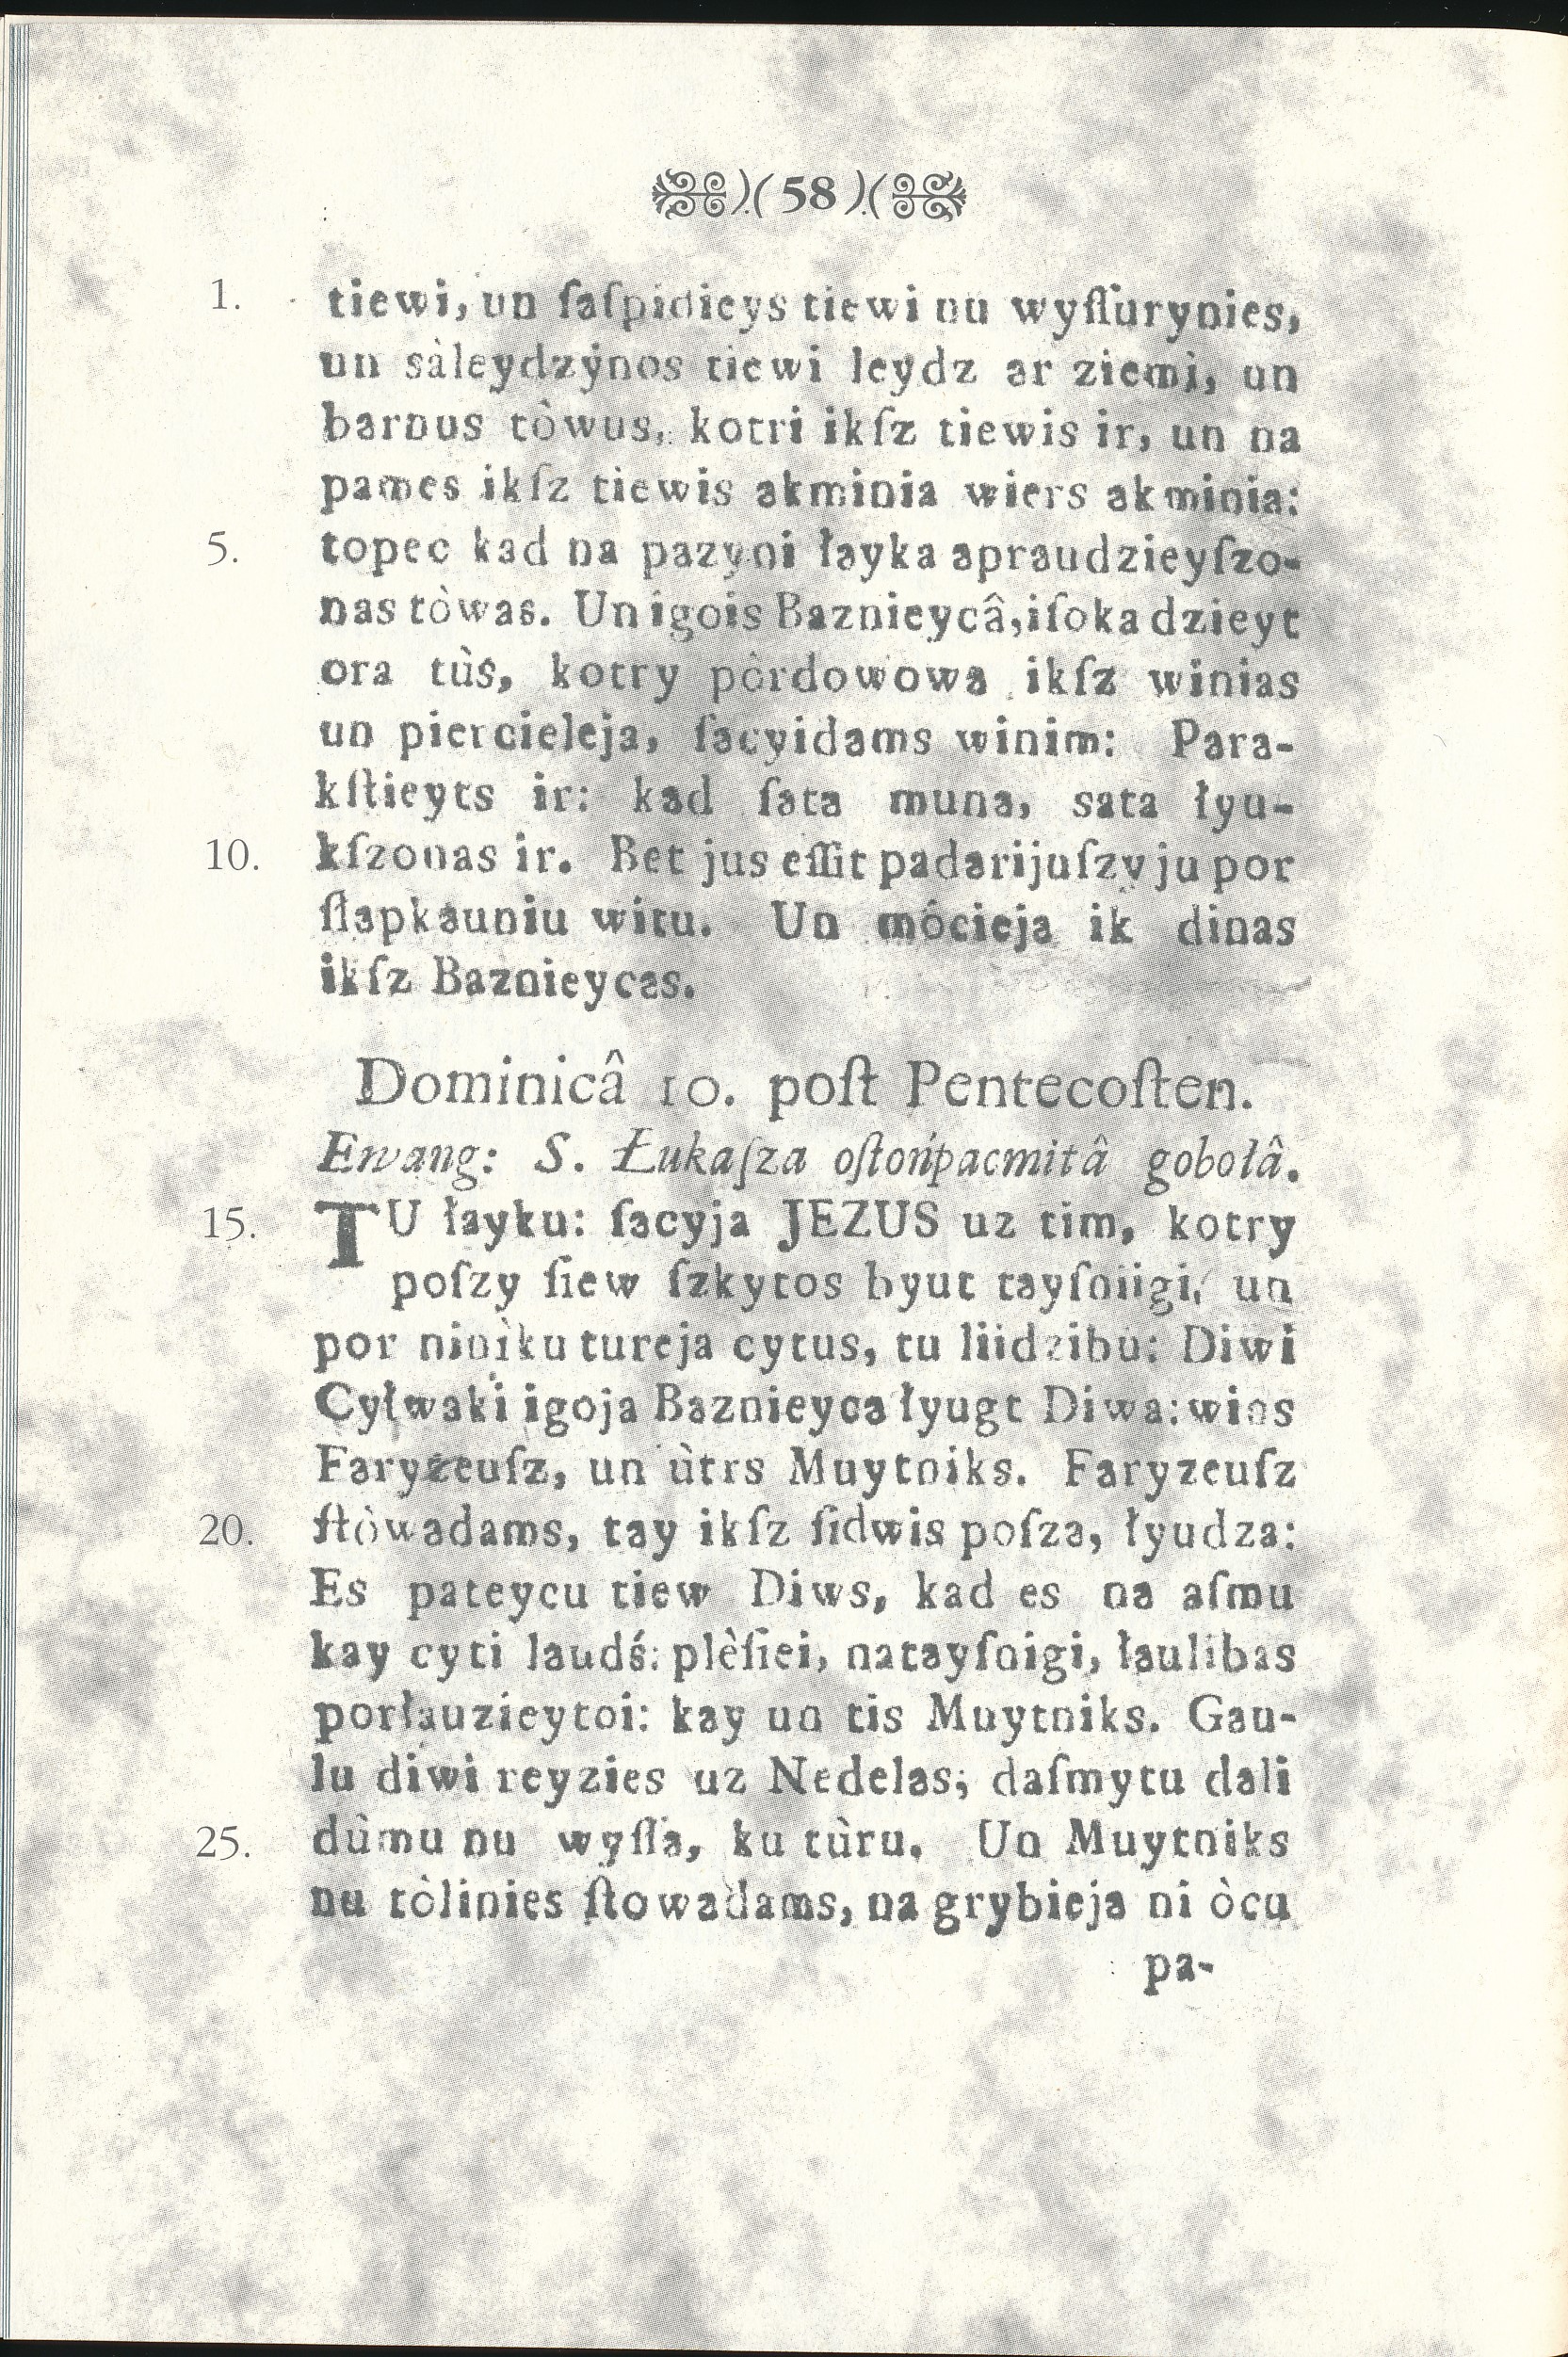 ).( 58 ).(
1. tiewi, un ſaſpidieys tiewi nu wyſſurynies,
un sàleydzẏnos tiewi leydz ar ziemì, un
barnus tòwus, kotri ikſz tiewis ir, un na
pames ikſz tiewis akminia wiers akminia:
5. topec kad na pazyni łayka apraudzieyſzo-
nas tòwas. Un igois Baznieycâ, iſoka dzieyt
ora tùs, kotry pôrdowowa ikſz winias
un piercieleja, ſacyidams winim: Para-
kſtieyts ir: kad ſata muna, sata łyu-
10. kſzonas ir. Bet jus eſſit padarijuſzy ju por
ſlapkauniu witu. Un môcieja ik dinas
ikſz Baznieycas.
Dominicâ 10. poſt Pentecoſten.
Ewang: S. Łukaſza oſtońpacmitâ gobołâ.
15. TU łayku: ſacyja JEZUS uz tim, kotry
poſzy ſiew ſzkytos byut tayſniigi, un
por niniku tureja cytus, tu liidzibu: Diwi
Cyłwaki igoja Baznieyca łyugt Diwa: wins
Faryzeuſz, un ùtrs Muytniks. Faryzeuſz
20. ſtòwadams, tay ikſz ſidwis poſza, łyudza:
Es pateycu tiew Diws, kad es na aſmu
kay cyti laudś: plèſiei, natayſnigi, łaulibas
porłauzieytoi: kay un tis Muytniks. Gau-
lu diwi reyzies uz Nedelas; daſmytu dali
25. dùmu nu wyſſa, ku tùru. Un Muytniks
nu tòlinies ſtowadams, na grybieja ni òcu
pa-